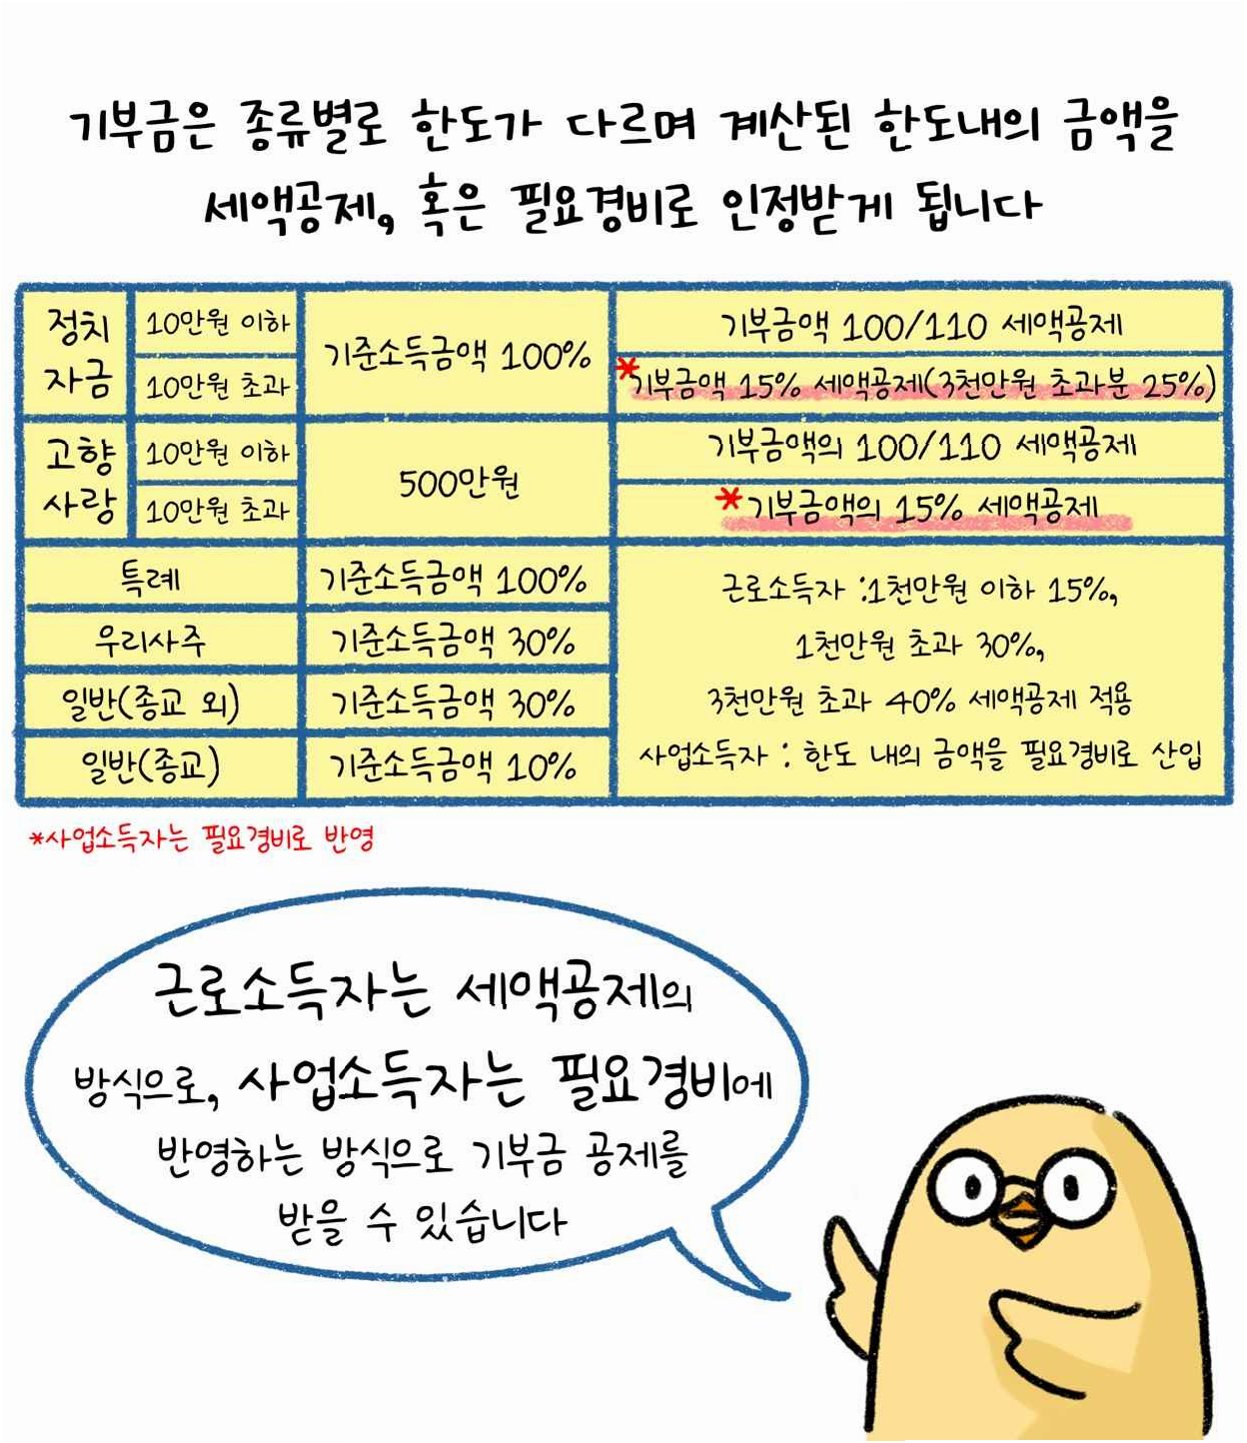 기부금은 종류별로 한도가 다르며 계산된 한도내의 금액을
세액공제, 혹은 필요경비로 인정받게 됩니다
정치
자금
10만원 이하
10만원 초과
기준소득금액 100%
기부금액 100/110 세액공제
*기부금액 15% 세액공제(3천만원 초과분 25%)
고향
사랑
10만원 이하
10만원 초과
500만원
기부금액의 100/110 세액공제
*기부금액의 15% 세액공제
특례
기준소득금액 100%
우리사주
기준소득금액 30%
일반(종교 외)
기준소득금액 30%
일반(종교)
기준소득금액 10%
근로소득자 :1천만원 이하 15%,
1천만원 초과 30%,
3천만원 초과 40% 세액공제 적용
사업소득자 : 한도 내의 금액을 필요경비로 산입
*사업소득자는 필요경비로 반영
근로소득자는 세액공제의
방식으로, 사업소득자는 필요경비에
반영하는 방식으로 기부금 공제를
받을 수 있습니다